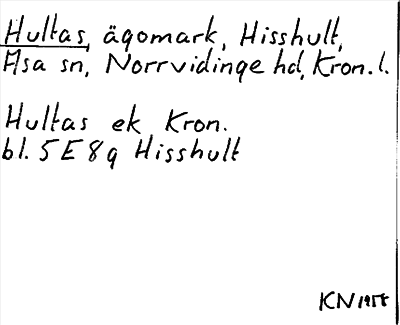 Hultas, ägomark, Hisshult,
Asa sn, Norrvidinge hd, Kron. l.
Hultas ek Kron.
bl. 5E8g Hisshult
KN